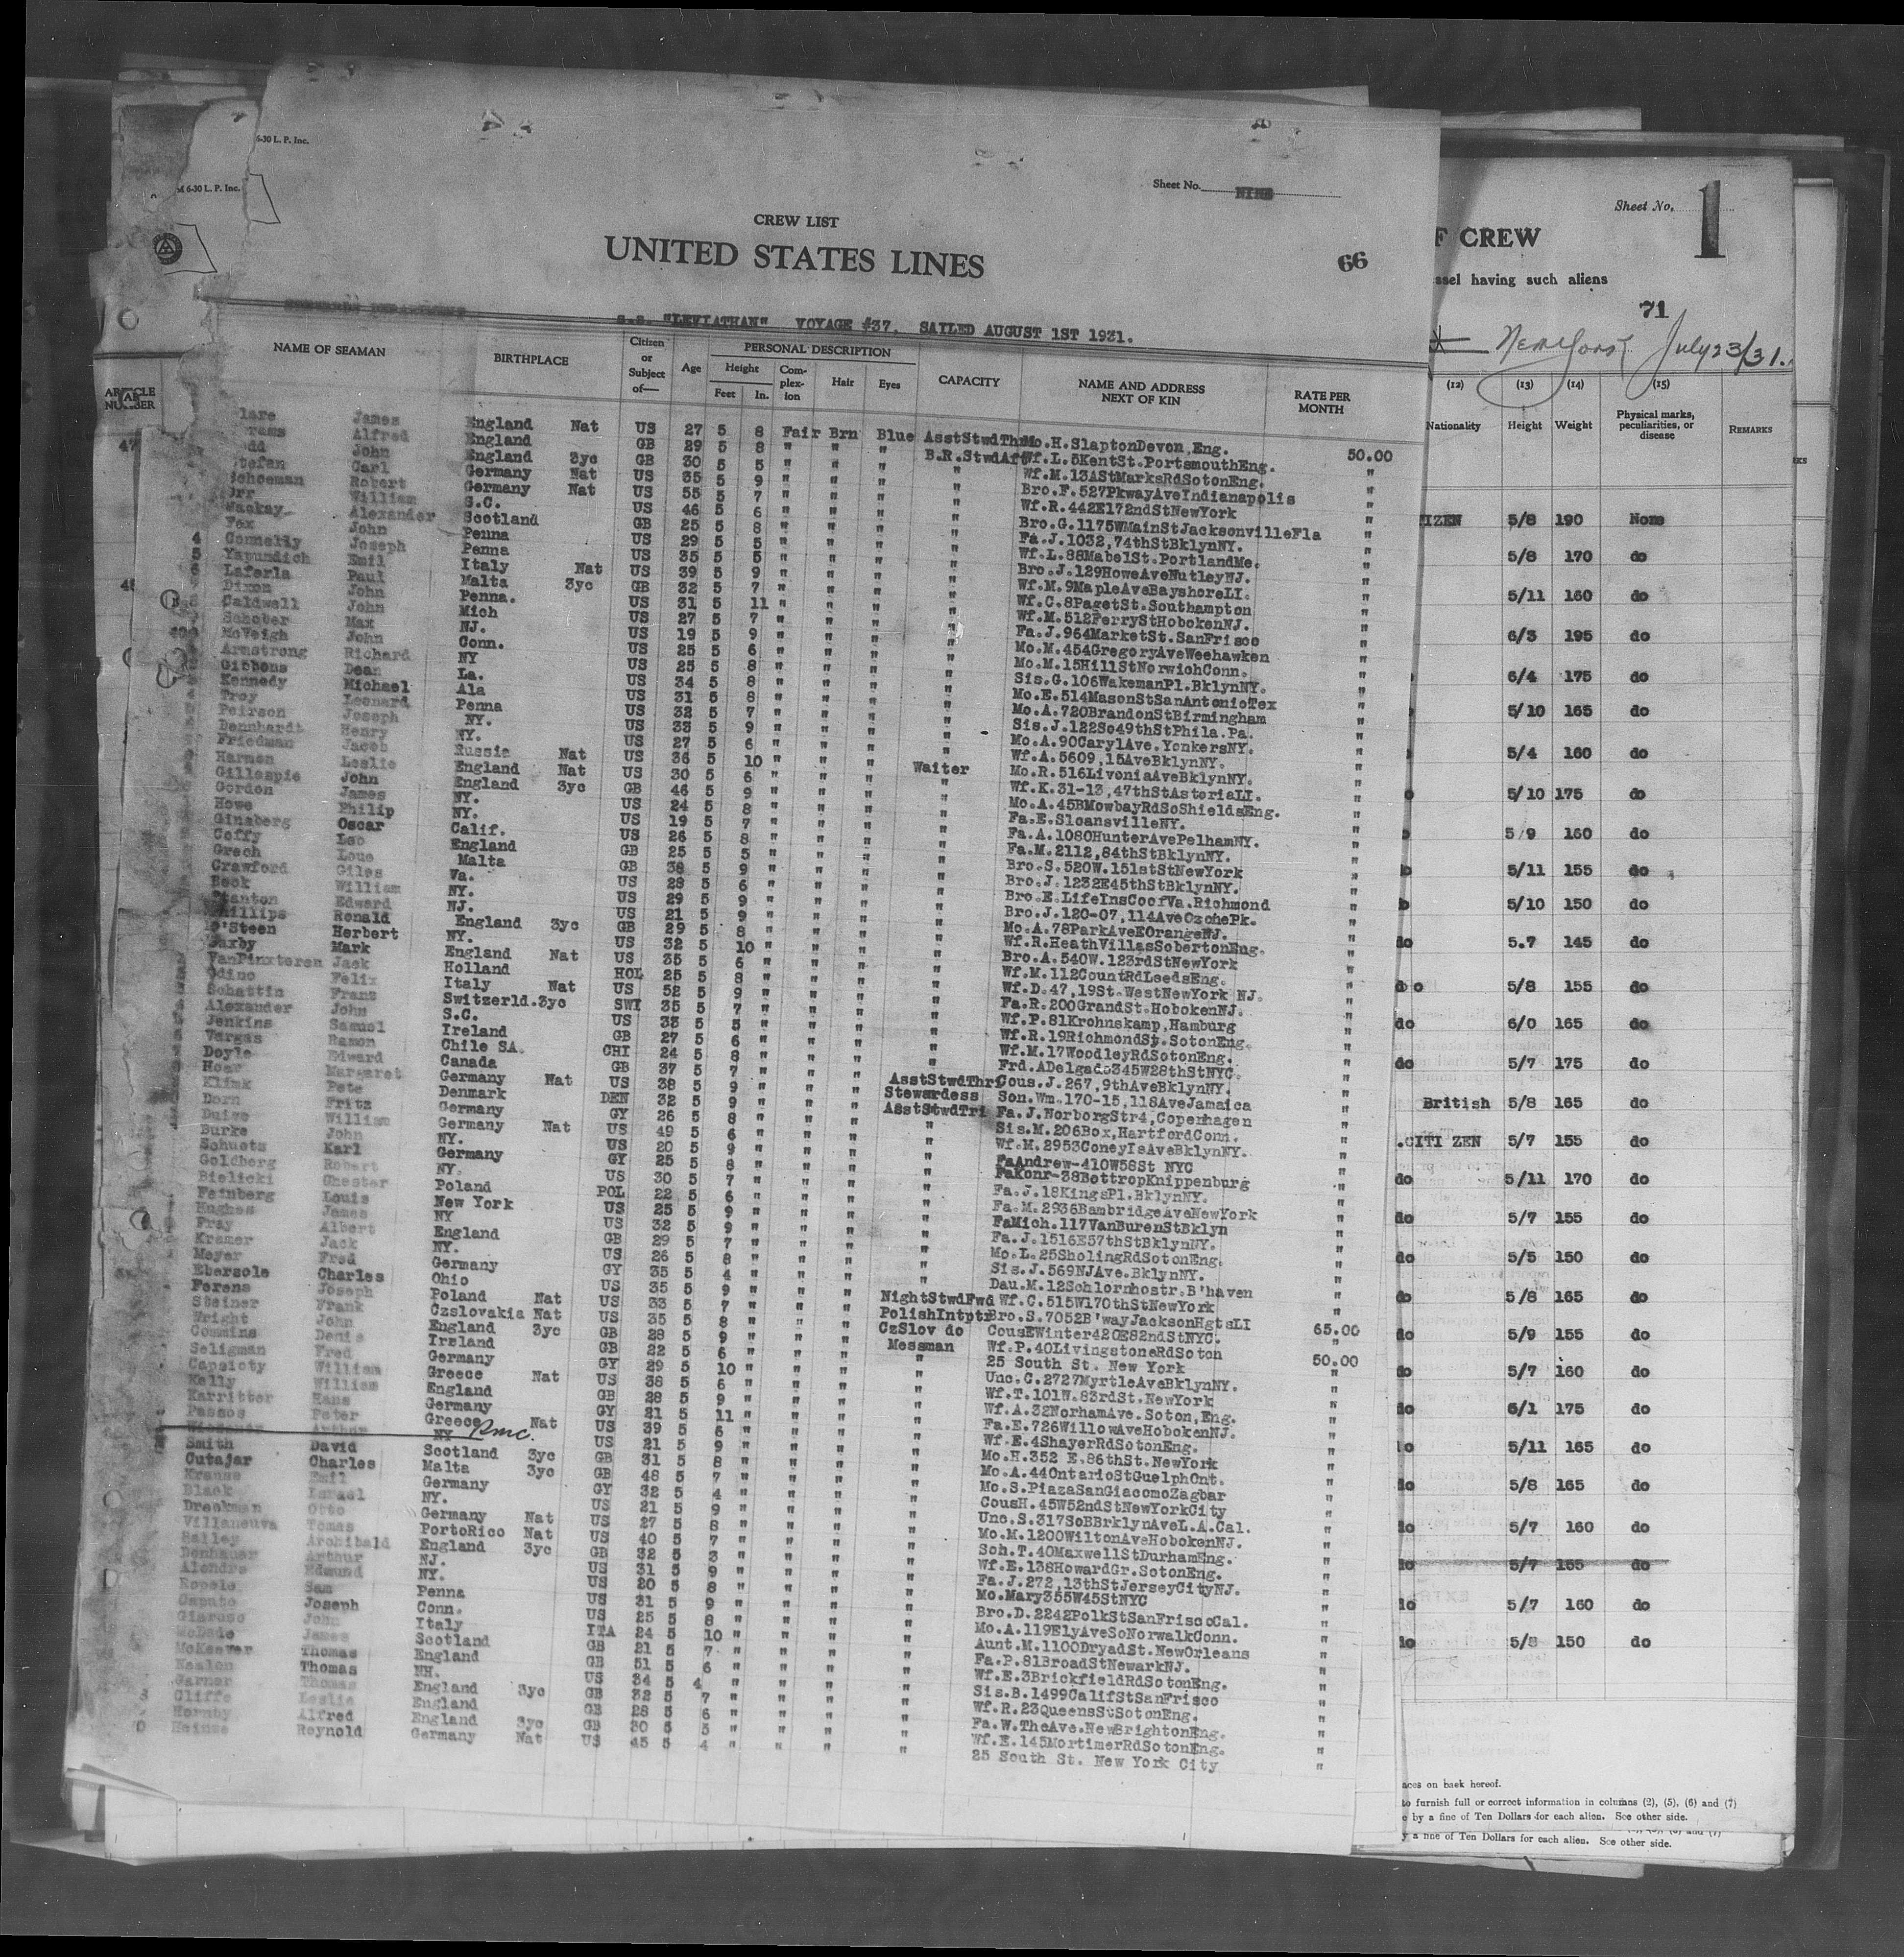 6-30 L. P. Inc.
M 6-30 L. P. Inc.
Sheet No. NINE
CREW LIST
UNITED STATES LINES
66
S.S. "LEVIATHAN" VOYAGE #37. SAILED AUGUST 1ST 1931.
ARTICLE NUMBER
NAME OF SEAMAN BIRTHPLACE Citizen or Subject of— Age PERSONAL DESCRIPTION Height Feet In. Complexion Hair Eyes CAPACITY NAME AND ADDRESS NEXT OF KIN RATE PER MONTH
James England Nat US 27 5 8 Fair Brn Blue AsstStwdThri Mo.H.SlaptonDevon,Eng. 50.00
Alfred England GB 29 5 8 " " " B.R.StwdAft Wf.L.5KentSt.PortsmouthEng. "
John England 3yc GB 30 5 5 " " " " Wf.M.13AStMarksRdSotonEng. "
Stefan Carl Germany Nat US 35 5 9 " " " " Bro.F.527PkwayAveIndianapolis "
Schoeman Robert Germany Nat US 55 5 7 " " " " Wf.R.442E172ndStNewYork "
Orr William S.C. US 46 5 6 " " " " Bro.G.1175WMainStJacksonvilleFla "
Mackay Alexander Scotland GB 25 5 8 " " " " Fa.J.1032,74thStBklynNY. "
Fox John Penna US 29 5 5 " " " " Wf.L.88MabelSt.PortlandMe. "
Connelly Joseph Penna US 35 5 5 " " " " Bro.J.129HoweAveNutleyNJ. "
Yapundich Emil Italy Nat US 39 5 9 " " " " Wf.M.9MapleAveBayshoreLI. "
Laferla Paul Malta 3yc GB 32 5 7 " " " " Wf.C.8PagetSt.Southampton "
Dixon John Penna. US 31 5 11 " " " " Wf.M.512FerryStHobokenNJ. "
Caldwell John Mich US 27 5 7 " " " " Fa.J.964MarketSt.SanFrisco "
Schober Max NJ. US 19 5 9 " " " " Mo.M.454GregoryAveWeehawken "
McVeigh John Conn. US 25 5 6 " " " " Mo.M.15HillStNorwichConn. "
Armstrong Richard NY US 25 5 8 " " " " Sis.G.106WakemanPl.BklynNY. "
Gibbons Dean La. US 34 5 8 " " " " Mo.E.514MasonStSanAntonioTex "
Kennedy Michael Ala US 31 5 8 " " " " Mo.A.720BrandonStBirmingham "
Troy Leonard Penna US 32 5 7 " " " " Sis.J.122So49thStPhila.Pa. "
Peirson Joseph NY. US 33 5 9 " " " " Mo.A.90CarylAve.YonkersNY. "
Dennhardt Henry NY. US 27 5 6 " " " " Wf.A.5609,15AveBklynNY. "
Friedman Jacob Russia Nat US 36 5 10 " " " Waiter Mo.R.516LivoniaAveBklynNY. "
Harmon Leslie England Nat US 30 5 6 " " " " Wf.K.31-13,47thStAstoriaLI. "
Gillespie John England 3yc GB 46 5 9 " " " " Mo.A.45BMowbayRdSoShieldsEng. "
Gordon James NY. US 24 5 8 " " " " Fa.E.SloansvilleNY. "
Howe Philip NY. US 19 5 7 " " " " Fa.A.1080HunterAvePelhamNY. "
Ginsberg Oscar Calif. US 26 5 8 " " " " Fa.M.2112,84thStBklynNY. "
Coffy Leo England GB 25 5 5 " " " " Bro.S.520W.151stStNewYork "
Grech Loue Malta GB 38 5 9 " " " " Bro.J.1232E45thStBklynNY. "
Crawford Giles Va. US 28 5 6 " " " " Bro.E.LifeInsCoofVa.Richmond "
Beck William NY. US 29 5 9 " " " " Bro.J.120-07,114AveOzonePk. "
Stanton Edward NJ. US 21 5 9 " " " " Mo.A.78ParkAveEOrangeNJ. "
Phillips Ronald England 3yc GB 29 5 8 " " " " Wf.R.HeathVillasSobertonEng. "
O'Steen Herbert NY. US 32 5 10 " " " " Bro.A.540W.123rdStNewYork "
Saxby Mark England Nat US 35 5 6 " " " " Wf.M.112CountRdLeedsEng. "
VanPinxteren Jack Holland HOL 25 5 8 " " " " Wf.D.47,19St.WestNewYork NJ. "
Odino Felix Italy Nat US 52 5 9 " " " " Fa.R.200GrandSt.HobokenNJ. "
Schattin Franz Switzerld.3yc SWI 35 5 7 " " " " Wf.P.81Krohnskamp,Hamburg "
Alexander John S.C. US 33 5 5 " " " " Wf.R.19RichmondSt.SotonEng. "
Jenkins Samuel Ireland GB 27 5 6 " " " " Wf.M.17WoodleyRdSotonEng. "
Vargas Ramon Chile SA. CHI 24 5 8 " " " " Frd.ADelgado345W28thStNYC. "
Doyle Edward Canada GB 37 5 7 " " " AsstStwdThri Cous.J.267,9thAveBklynNY. "
Hoar Margaret Germany Nat US 38 5 9 " " " Stewardess Son.Wm.170-15,118AveJamaica "
Klink Pete Denmark DEN 32 5 9 " " " AsstStwdTri Fa.J.NorborgStr4,Copenhagen "
Dorn Fritz Germany GY 26 5 8 " " " " Sis.M.206Box,HartfordConn. "
William Germany Nat US 49 5 6 " " " " Wf.M.2953ConeyIsAveBklynNY. "
Burke John NY. US 20 5 9 " " " " FaAndrew-410W58St NYC "
Schuets Karl Germany GY 25 5 8 " " " " FaKonr-38BottropKnippenburg "
Goldberg Robert NY. US 30 5 7 " " " " Fa.J.18KingsPl.BklynNY. "
Bielicki Chester Poland POL 22 5 6 " " " " Fa.M.2936BambridgeAveNewYork "
Feinberg Louis New York US 25 5 9 " " " " FaMich.117VanBurenStBklyn "
Hughes James NY US 32 5 9 " " " " Fa.J.1516E57thStBklynNY. "
Fray Albert England GB 29 5 7 " " " " Mo.L.25SholingRdSotonEng. "
Kramer Jack NY. US 26 5 8 " " " " Sis.J.569NJAve.BklynNY. "
Meyer Fred Germany GY 35 5 4 " " " " Dau.M.12Schlornhostr.B'haven "
Ebersole Charles Ohio US 35 5 9 " " " NightStwdFwd Wf.C.515W170thStNewYork "
Ferens Joseph Poland Nat US 33 5 7 " " " PolishIntptr Bro.S.7052B'wayJacksonHgtsLI 65.00
Steiner Frank Czslovakia Nat US 35 5 8 " " " CzSlov do CousEWinter420E82ndStNYC. "
Wright John England 3yc GB 28 5 9 " " " Messman Wf.P.40LivingstoneRdSoton 50.00
Commins Denis Ireland GB 22 5 6 " " " " 25 South St. New York "
Seligman Fred Germany GY 29 5 10 " " " " Unc.C.2727MyrtleAveBklynNY. "
Capsioty William Greece Nat US 38 5 6 " " " " Wf.T.101W.83rdSt.NewYork "
Kelly William England GB 28 5 9 " " " " Wf.A.32NorhamAve.Soton,Eng. "
Karritter Hans Germany GY 21 5 11 " " " " Fa.E.726WillowAveHobokenNJ. "
Passos Peter Greece Nat US 39 5 6 " " " " Wf.E.4ShayerRdSotonEng. "
NY US 21 5 9 " " " " Mo.H.352 E.86thSt.NewYork "
Smith David Scotland 3yc GB 31 5 8 " " " " Mo.A.44OntarioStGuelphOnt. "
Cutajar Charles Malta 3yc GB 48 5 7 " " " " Mo.S.PiazaSanGiacomoZagbar "
Krause Emil Germany GY 32 5 4 " " " " CousH.45W52ndStNewYorkCity "
Black Israel NY. US 21 5 9 " " " " Unc.S.317SoBBrklynAveL.A.Cal. "
Otto Germany Nat US 27 5 8 " " " " Mo.M.1200WiltonAveHobokenNJ. "
Villaneuva Tomas PortoRico Nat US 40 5 7 " " " " Sch.T.40MaxwellStDurhamEng. "
Bailey Archibald England 3yc GB 32 5 3 " " " " Wf.E.138HowardGr.SotonEng. "
Denhauer Arthur NJ. US 31 5 9 " " " " Fa.J.272,13thStJerseyCityNJ. "
Edmund NY. US 20 5 8 " " " " Mo.Mary355W45StNYC "
Sam Penna US 31 5 9 " " " " Bro.D.2242PolkStSanFriscoCal. "
Caputo Joseph Conn. US 25 5 8 " " " " Mo.A.119ElyAveSoNorwalkConn. "
John Italy ITA 24 5 10 " " " " Aunt.M.1100DryadSt.NewOrleans "
McDade James Scotland GB 21 5 7 " " " " Fa.P.81BroadStNewarkNJ. "
McKeever Thomas England GB 51 5 6 " " " " Wf.E.3BrickfieldRdSotonEng. "
Thomas NH. US 34 5 4 " " " " Sis.B.1499CalifStSanFrisco "
Garner Thomas England 3yc GB 32 5 7 " " " " Wf.R.23QueensStSotonEng. "
Cliffe Leslie England GB 28 5 6 " " " " Fa.W.TheAve.NewBrightonEng. "
Hornby Alfred England 3yc GB 30 5 5 " " " " Wf.E.145MortimerRdSotonEng. "
Heinze Reynold Germany Nat US 45 5 4 " " " 25 South St. New York City "
Sheet No. 1
F CREW
ssel having such aliens
71
New York July 23/31.
(12) (13) (14) (15)
Nationality Height Weight Physical marks, peculiarities, or disease REMARKS
IZEN 5/8 190 None
5/8 170 do
5/11 160 do
6/3 195 do
6/4 175 do
5/10 165 do
5/4 160 do
5/10 175 do
5/9 160 do
5/11 155 do
5/10 150 do
do 5.7 145 do
do 5/8 155 do
do 6/0 165 do
do 5/7 175 do
British 5/8 165 do
.CITI ZEN 5/7 155 do
do 5/11 170 do
do 5/7 155 do
do 5/5 150 do
do 5/8 165 do
do 5/9 155 do
do 5/7 160 do
do 6/1 175 do
do 5/11 165 do
do 5/8 165 do
do 5/7 160 do
do 5/7 155 do
do 5/7 160 do
do 5/8 150 do
aces on back hereof.
to furnish full or correct information in columns (2), (5), (6) and (7)
e by a fine of Ten Dollars for each alien. See other side.
y a fine of Ten Dollars for each alien. See other side.